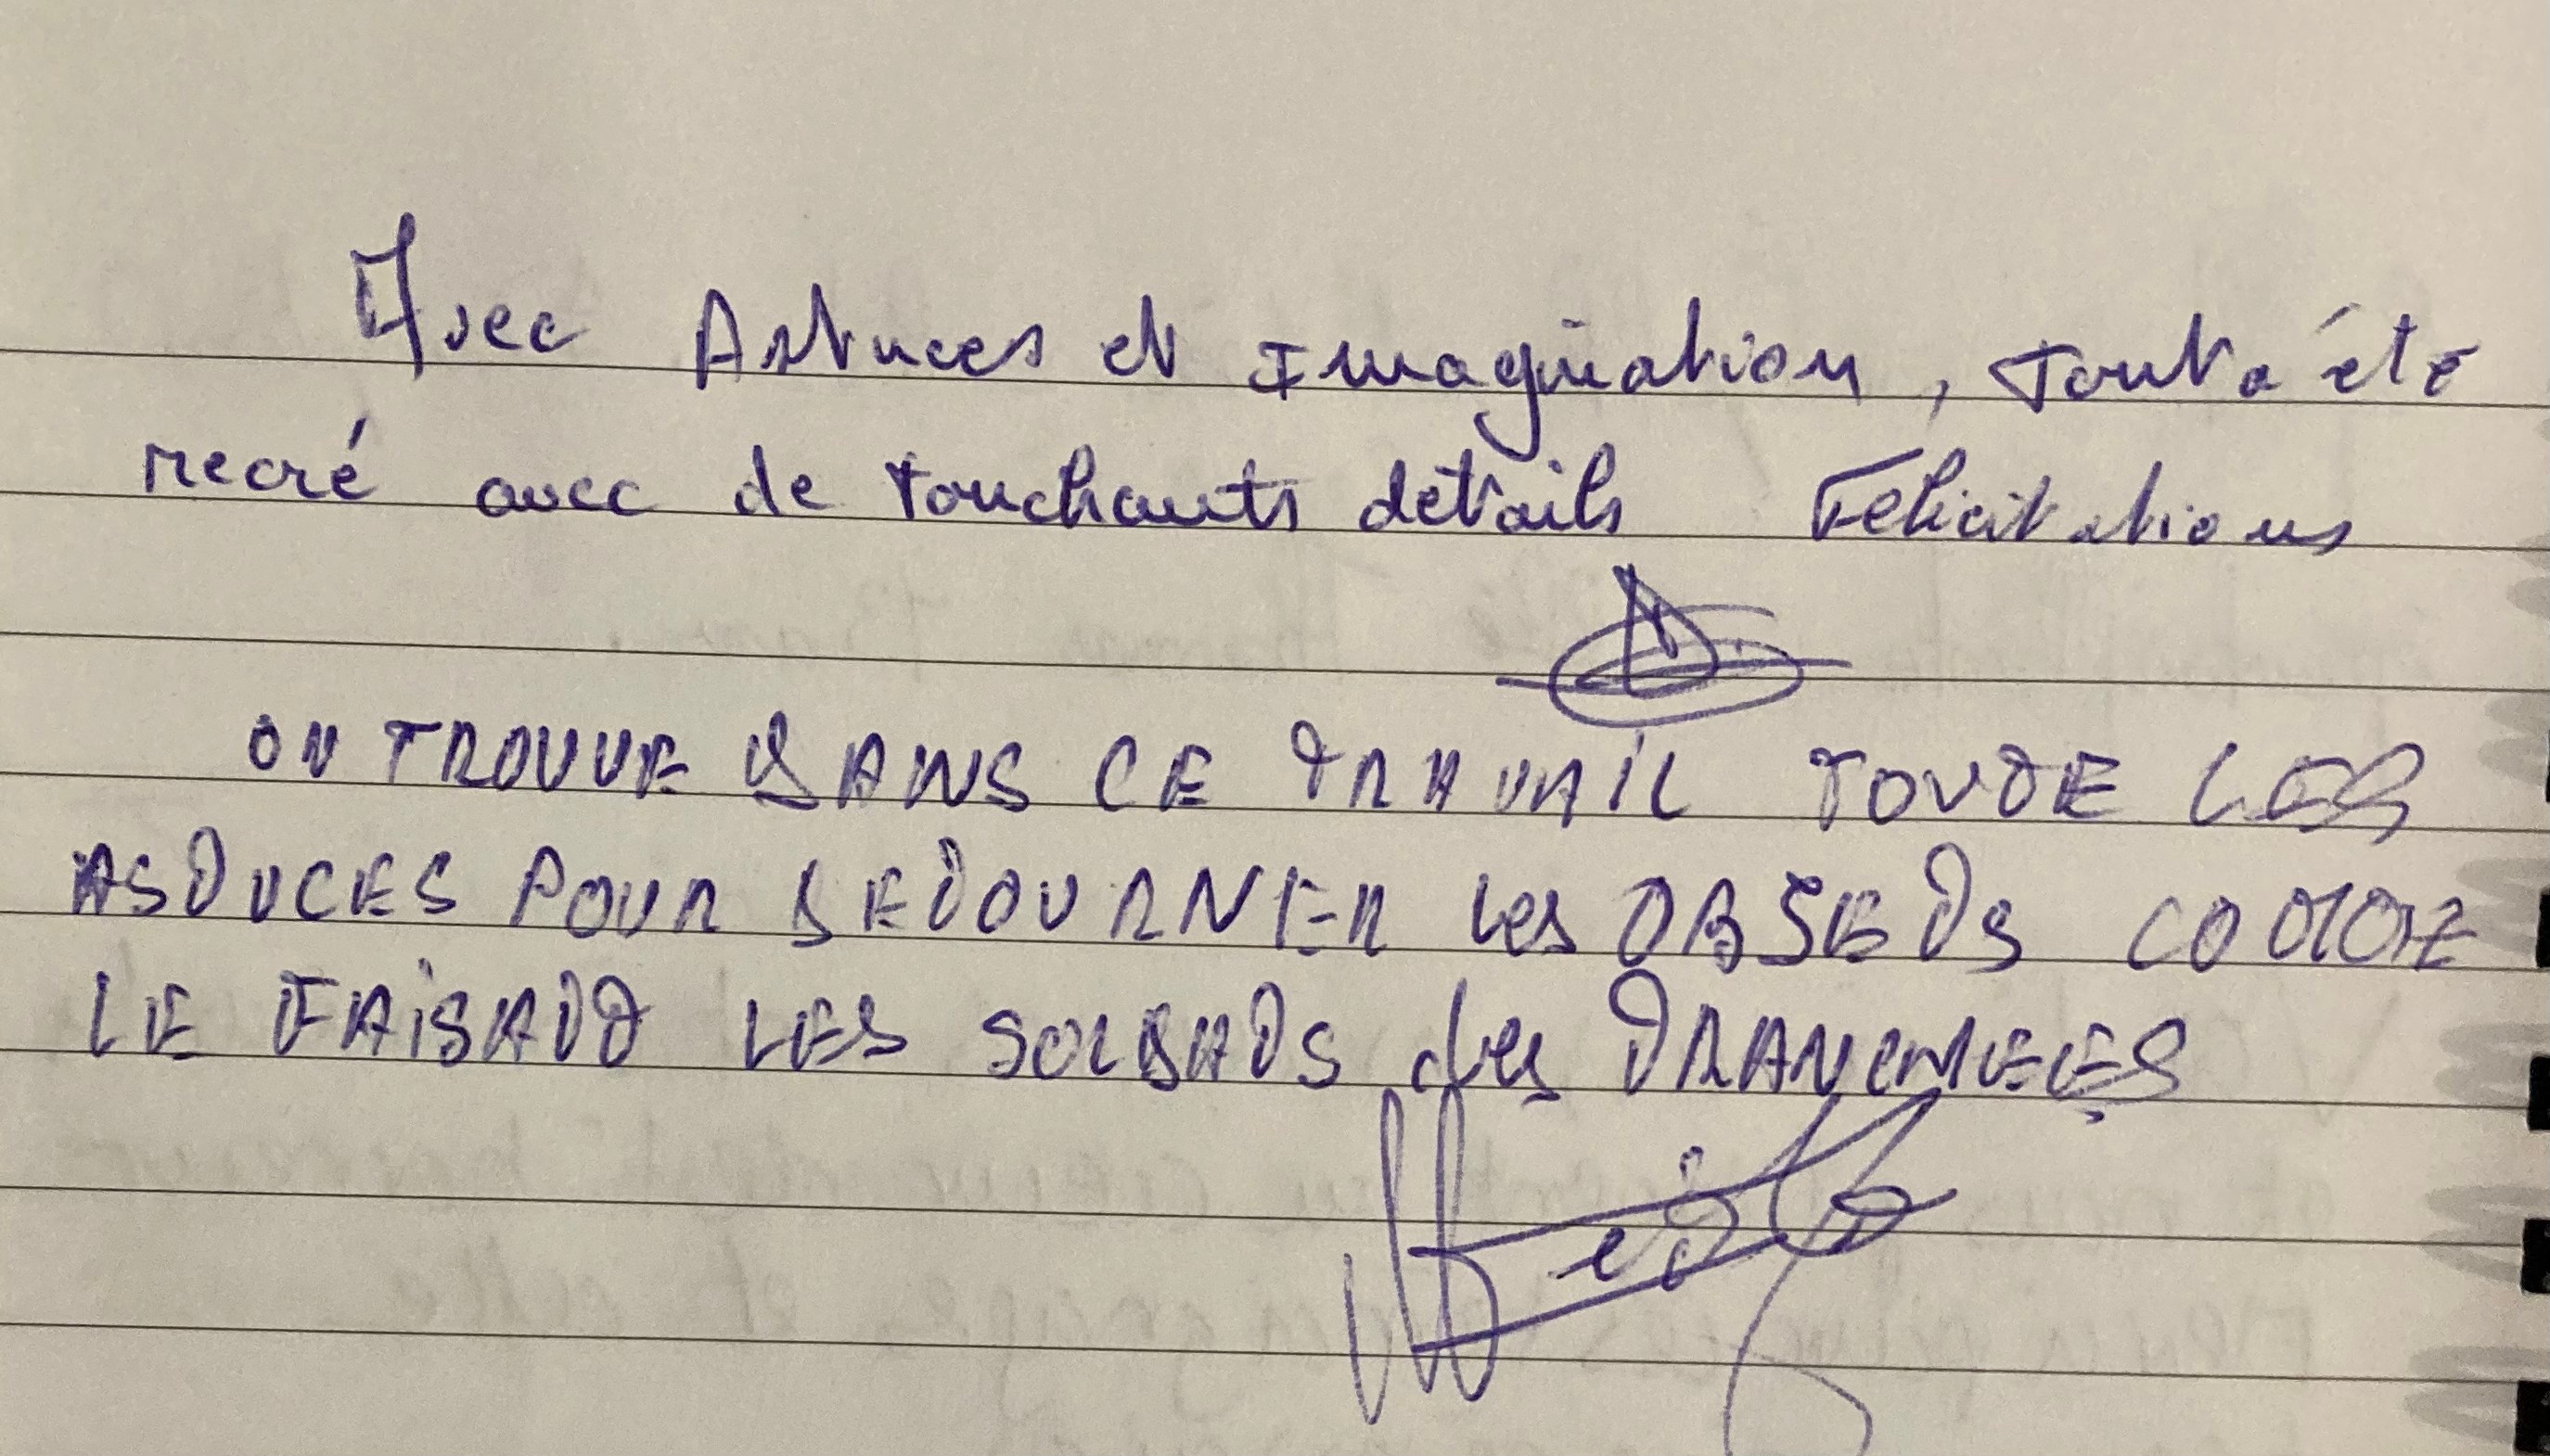 Avec Astuces et Imagination, tout a été
recré avec de touchants détails Félicitations
ON TROUVE DANS CE TRAVAIL TOUTE LES
ASTUCES POUR DETOURNER les OBJETS COMME
LE FAISAIT LES SOLDATS des TRANCHEES